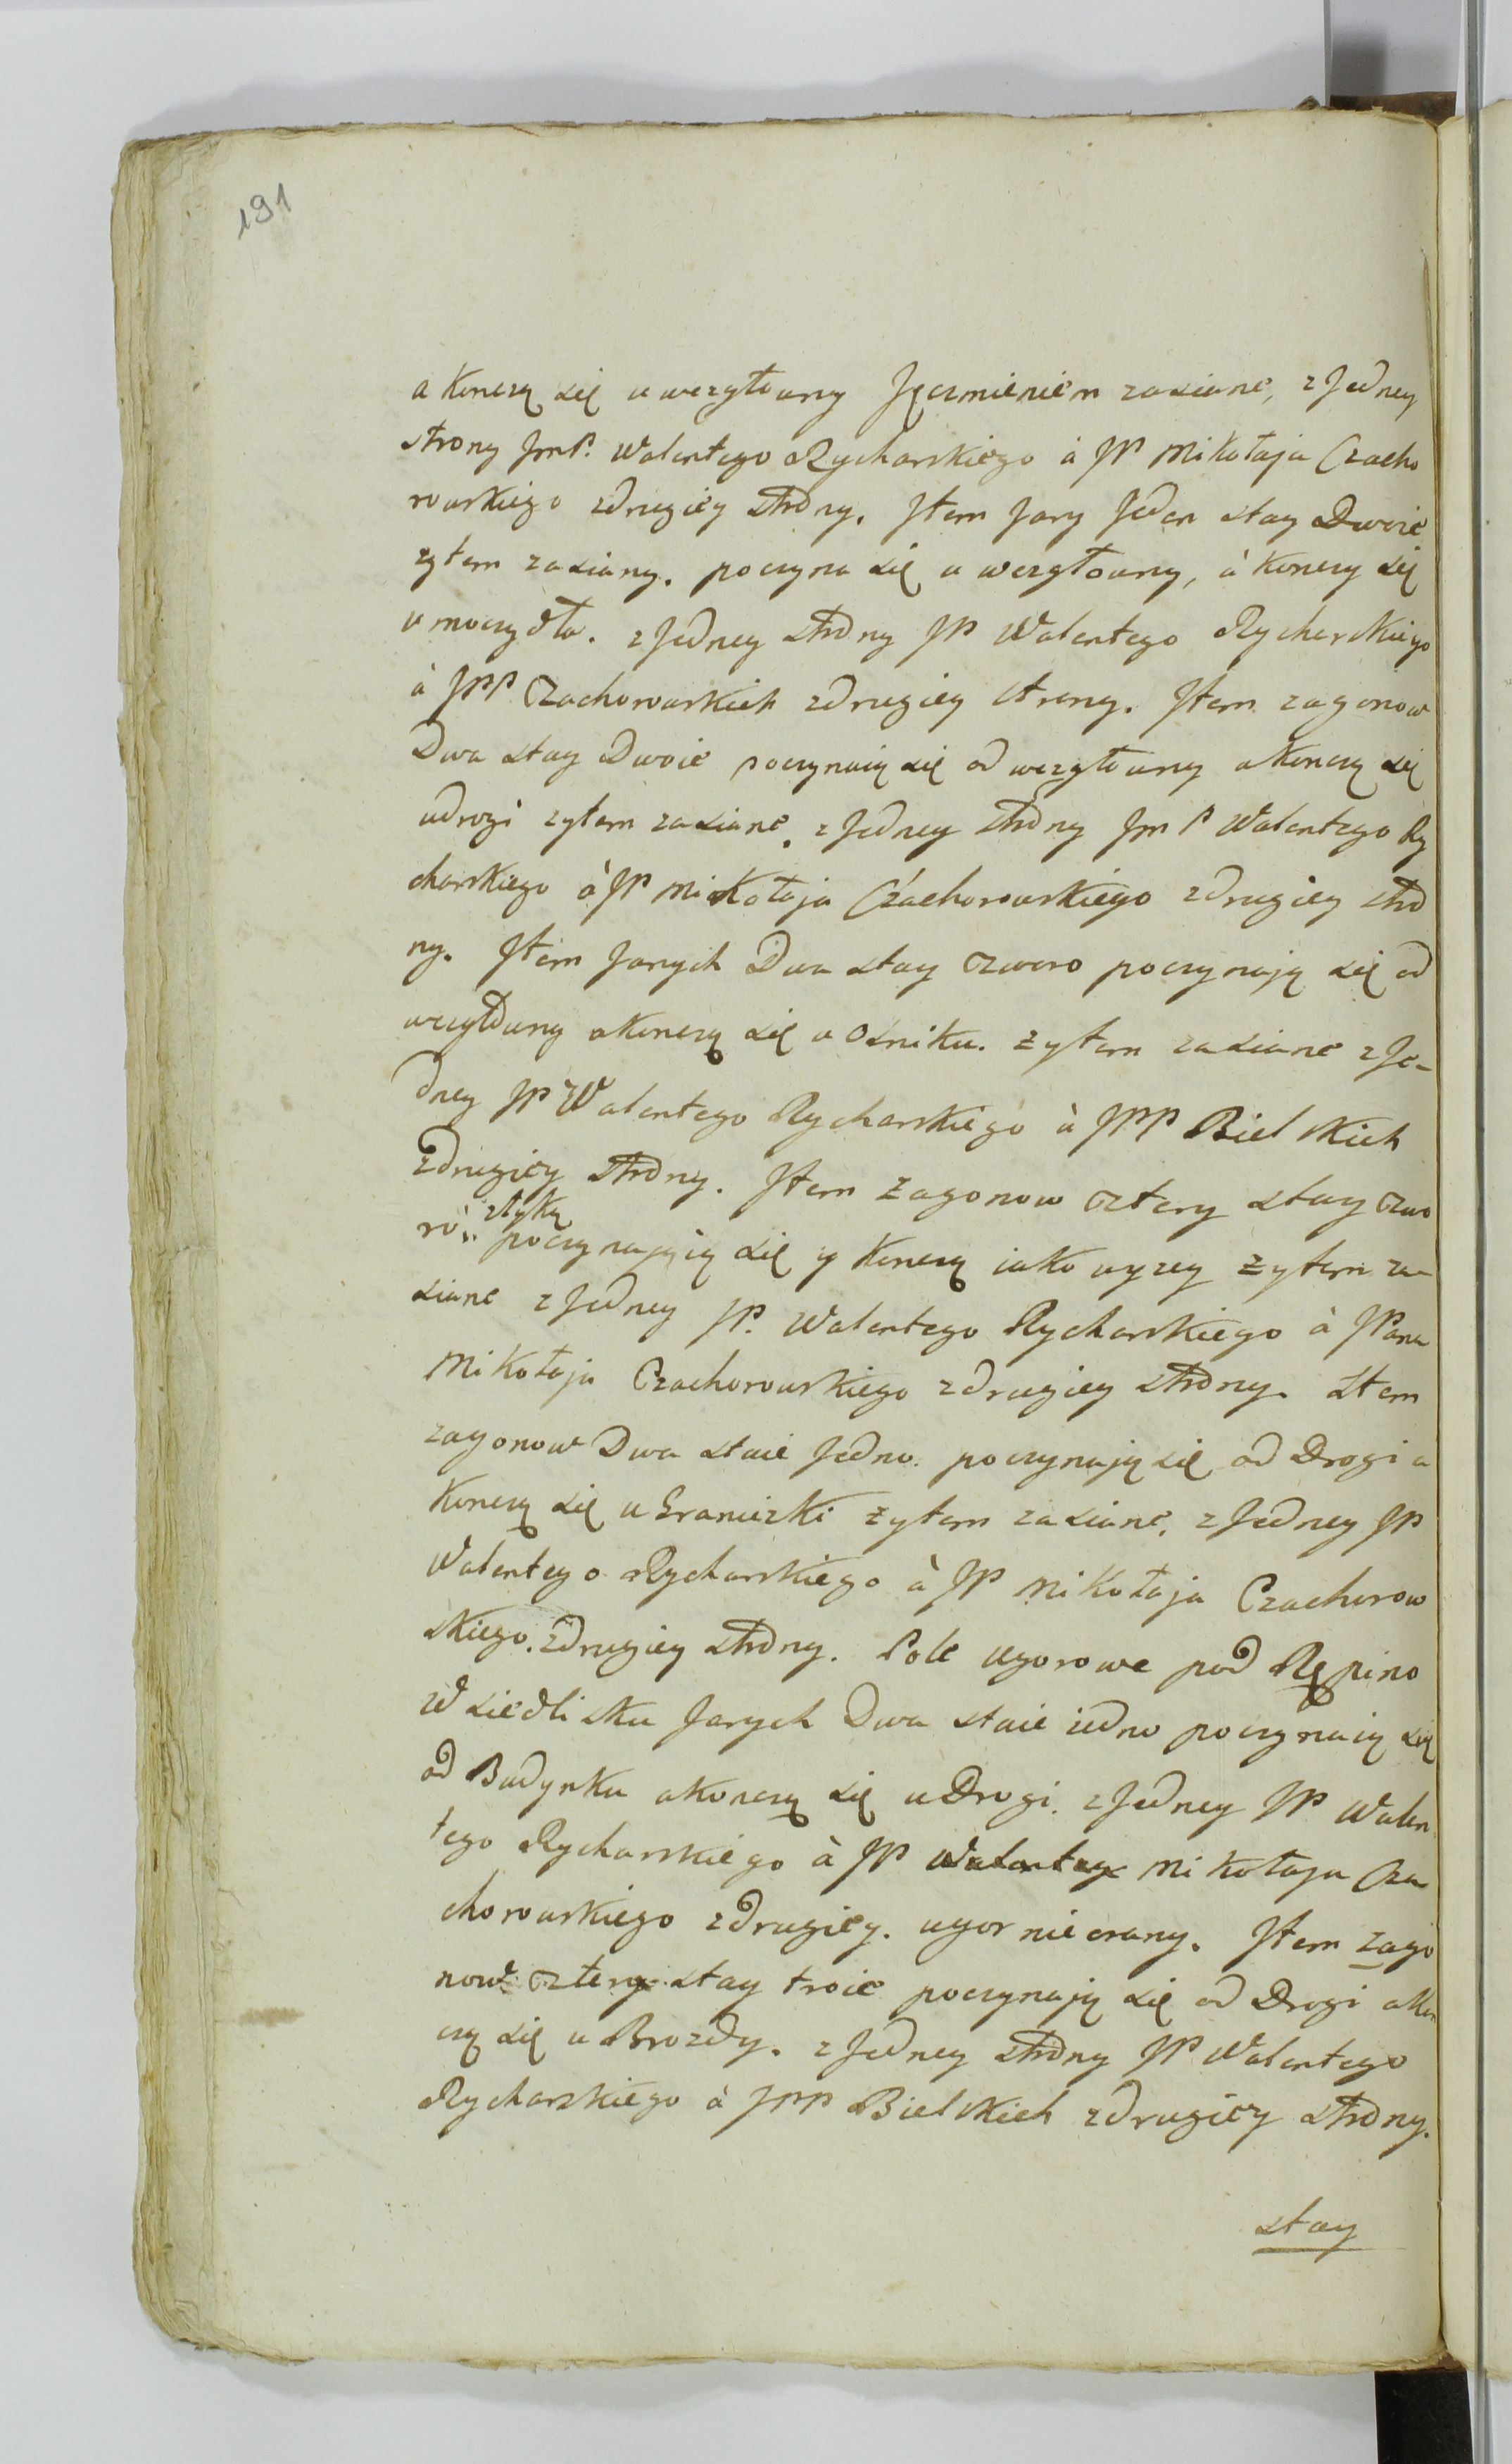 191
a konczą się u wezgłowny Jęczmieniem zasiane, z Jedney
strony JmP. Walentego Rycharskiego à JP Mikołaja Czacho
rowskiego zdrugiey strony. Jtem Jary Jeden stay Dwoie
zytem zasiany. poczyna się u wezgłowny, à konczy się
u moczydła. z Jedney strony JP Walentego Rycharskiego
à JPP Czachorowskich zdrugiey strony. Jtem zagonow
Dwa stay Dwoie poczynaią się od wezgłowny a konczą się
udrogi zytem zasiane. z Jedney strony Jm P Walentego Ry
charskiego à JP Mikołaja Czachorowskiego zdrugiey stro
ny. Jtem Jarych Dwa stay czworo poczynają się od
wezgłowny akonczą się u Osniku. zytem zasiane z Je-
dney JP Walentego Rycharskiego à JPP Bielskich
zdrugiey strony. Jtem zagonow cztery stay czwo
ro.. poczynająią się y konczą iako wyzey zytem za-
siane z Jedney JP. Walentego Rycharskiego à JPana
Mikołaja Czachorowskiego zdrugiey strony. Item
zagonow Dwa staie Jedno. poczynają się od Drogi a
konczą się u Graniczki zytem zasiane. z Jedney JP
Walentego Rycharskiego à JP Mikołaja Czachorow
skiego. zdrugiey strony. Pole ugorowe pod Rępino
W siedlisku Jarych Dwa staie iedno poczynaią się
od Budynku akonczą się u Drogi. z Jedney JP Walen
tego Rycharskiego à JP Walentey Mikołaja Cza
chorowskiego zdrugiey. ugor nie orany. Jtem zago
now cztery stay troie poczynają się od Drogi akon
czą się u Brozdy. z Jedney strony JP Walentego
Rycharskiego à JPP Bielskich zdrugiey strony.
stay